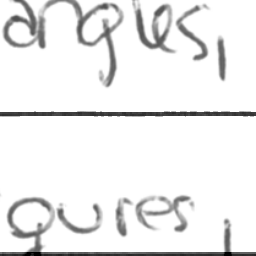 angles,
gures,